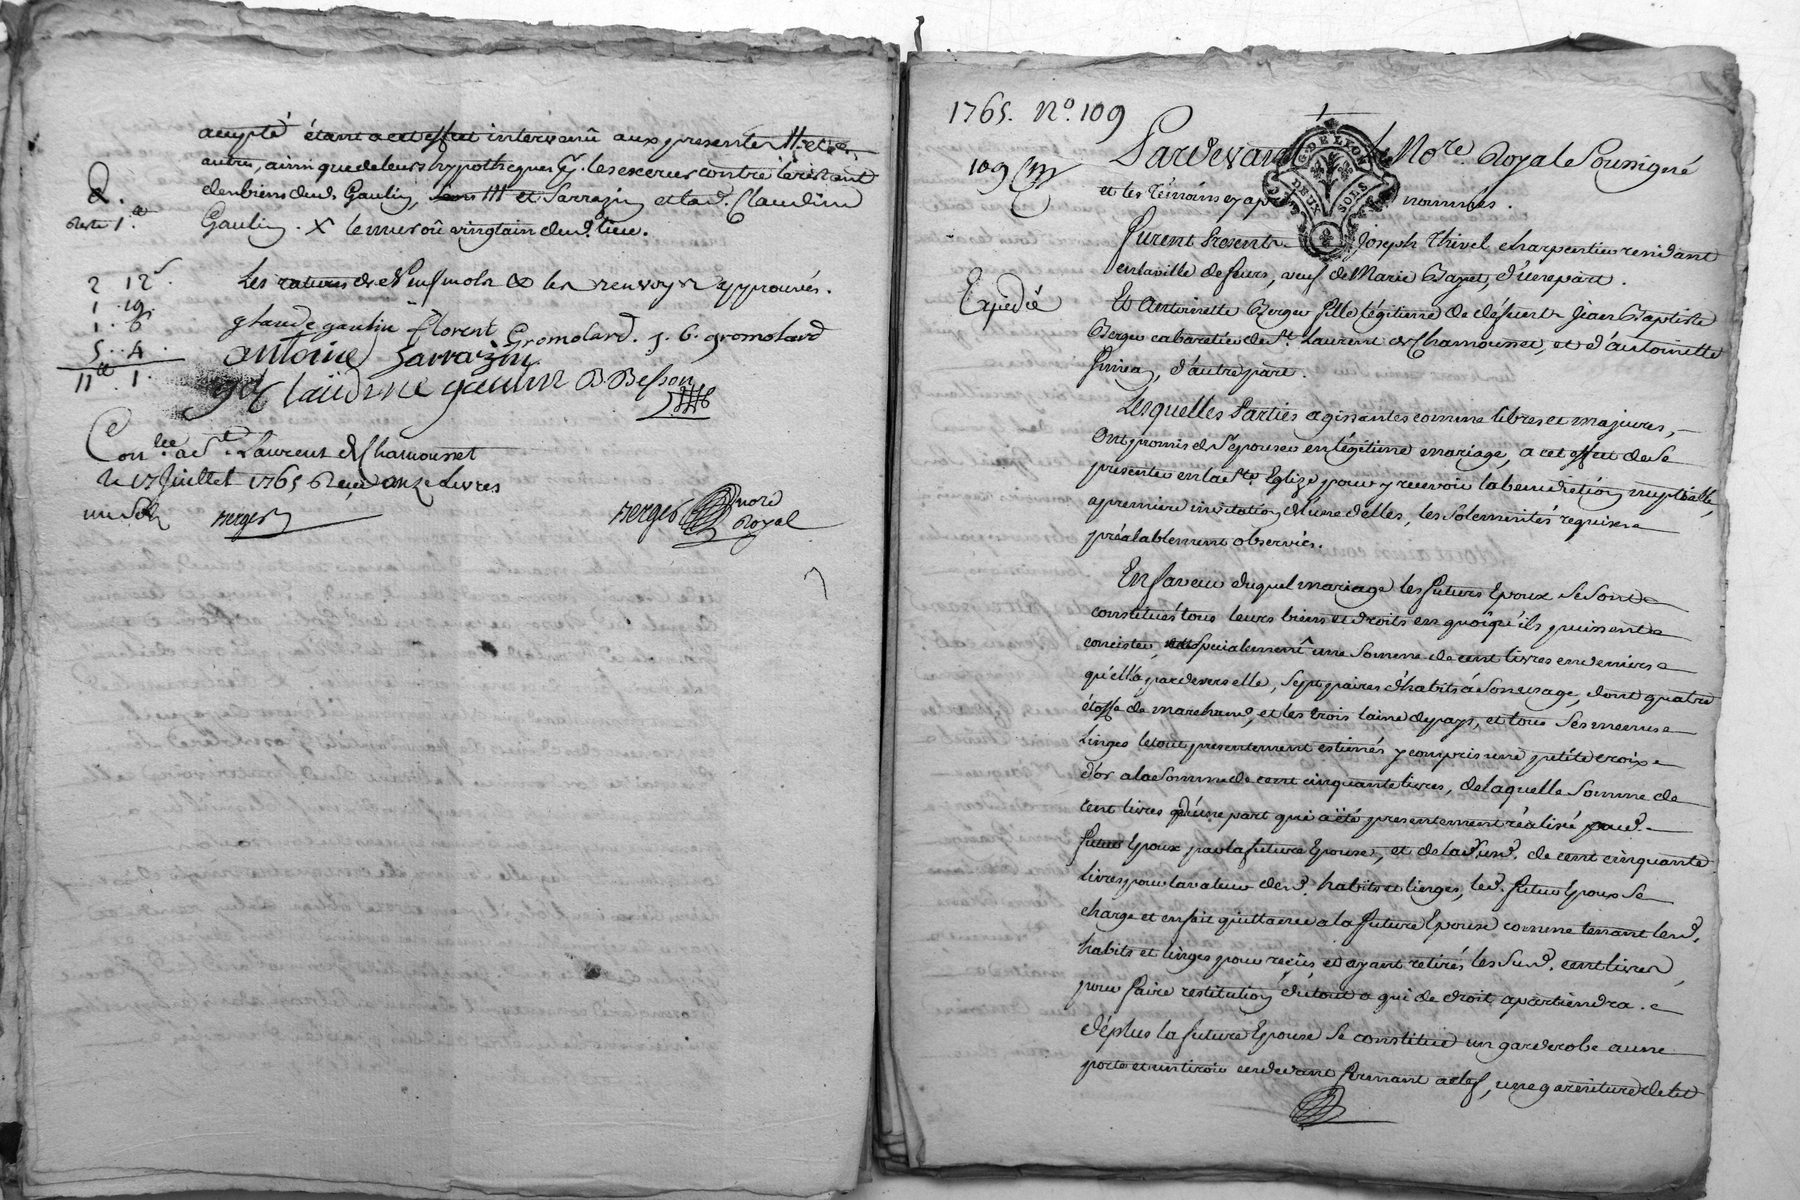 accepté étant a cet effet intervenû aux presentes
autres, ainsi que de leurs hypotheques les exercer contre
des biens dud. Gaulin, et Sarrazin et lad. Claudine
Reste 1.
Gaulin. X le mur où vingtain dud. lieu.
Les ratures de neuf mots & les renvoys approuvés.
2 12s.
1 . 19.
1 . 6
5 . 4 .
11ll 1 .
glaude gaulin florent Gromolard. j. b. gromolard
antoine Sarrazin
Claudine gaulin B Besson
Con.lée a St. Laurent de Chamousset
le 17 Juillet 1765 Reçu onze Livres
un Sol Berger
Berger nore
Royal
1765. No. 109
109
Expédié
G. DE LYON
DEUX SOLS
Pardevant le Nore. Royal Soussigné
et les témoins cy apres nommés.
Furent Presents Joseph Thivel charpentier residant
en la ville de feurs, veuf de Marie Bazet, d'une part.
Et Antoinette Berger fille légitime de defunt Jean Baptiste
Berger cabaretier de St. Laurent de Chamousset, et d'antoinette
, d'autre part.
Lesquelles Parties agissantes comme libres et majeures,
Ont promis de s'épouser en légitime mariage, a cet effet de Se
presenter en la Ste. Eglize pour y recevoir la benediction nuptialle,
a premiere invitation d'une d'elles, les Solemnités requises
préalablement observées.
En faveur duquel mariage les futurs Epoux Se Sont
constitués tous leurs biens et droits en quoiqu'ils puissent
concister, Specialement une Somme de cent livres en deniers
qu'ell'a pardevers elle, Sept paires d'habits à Son usage, dont quatre
étoffe de marchand, et les trois laine de pays, et tous Ses menus
Linges le tout presentement estimés y compris une petite croix
d'or a la Somme de cent cinquante livres, de laquelle Somme de
cent livres d'une part qui a été presentement réalisé aud.
futur Epoux par la future Epouse, et de la Susd. de cent cinquante
livres pour la valeur desd. habits et linges, led. futur Epoux Se
charge et en fait quittance a la future Epouse comme tenant lesd.
habits et linges pour reçus et ayant retirés les Susd. cent livres,
pour faire restitution du tout a qui de droit apartiendra.
déplus la future Epouse Se constitue un garderobe a une
porte et un tiroir en devant fermant a clef, une garniture de lit